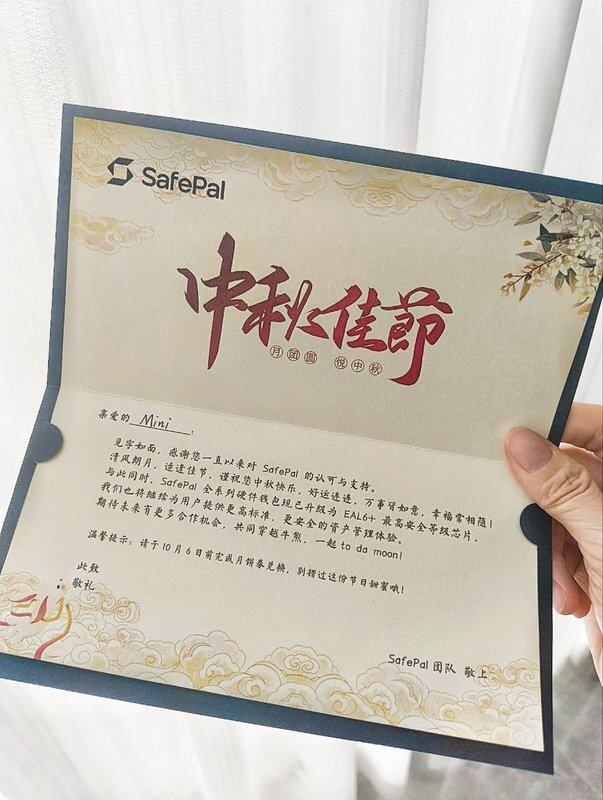 SafePal
中秋佳節
月团圆 悦中秋
亲爱的 Mini :
见字如面，感谢您一直以来对 SafePal 的认可与支持。
清风朗月，适逢佳节，谨祝您中秋快乐，好运连连，万事皆如意，幸福常相随！
与此同时，SafePal 全系列硬件钱包现已升级为 EAL6+ 最高安全等级芯片，
我们也将继续为用户提供更高标准、更安全的资产管理体验。
期待未来有更多合作机会，共同穿越牛熊，一起 to da moon!
温馨提示：请于10月6日前完成月饼券兑换，别错过这份节日甜蜜哦！
此致
敬礼
SafePal 团队 敬上